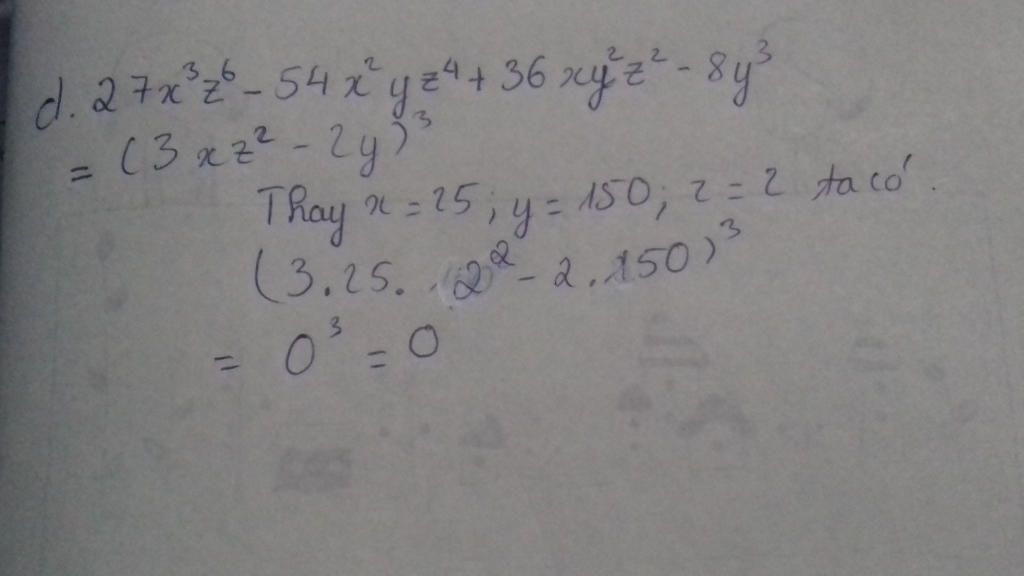 d. 27x³z⁶ - 54x²yz⁴ + 36xy²z² - 8y³
= (3xz² - 2y)³
Thay x = 25; y = 150; z = 2 ta có.
(3.25. 2² - 2.150)³
= 0³ = 0